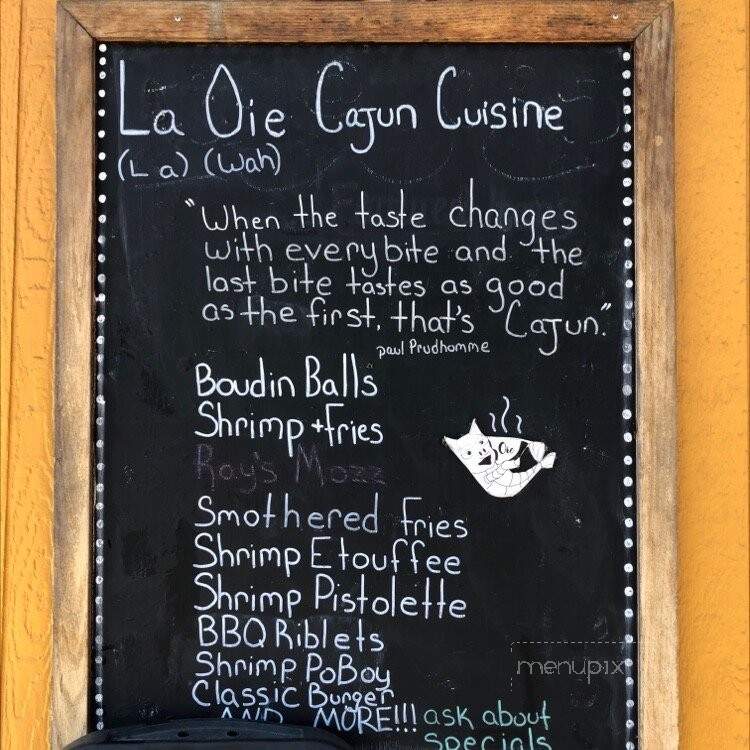 La Oie Cajun Cuisine
(La) (Wah)
"When the taste changes
with every bite and the
last bite tastes as good
as the first, that's Cajun."
paul Prudhomme
Boudin Balls
Shrimp + fries
Oie
Ray's Mozz
Smothered fries
Shrimp Etouffee
Shrimp Pistolette
BBQ Riblets
Shrimp PoBoy
menupix
Classic Burger
AND MORE!!! ask about
specials